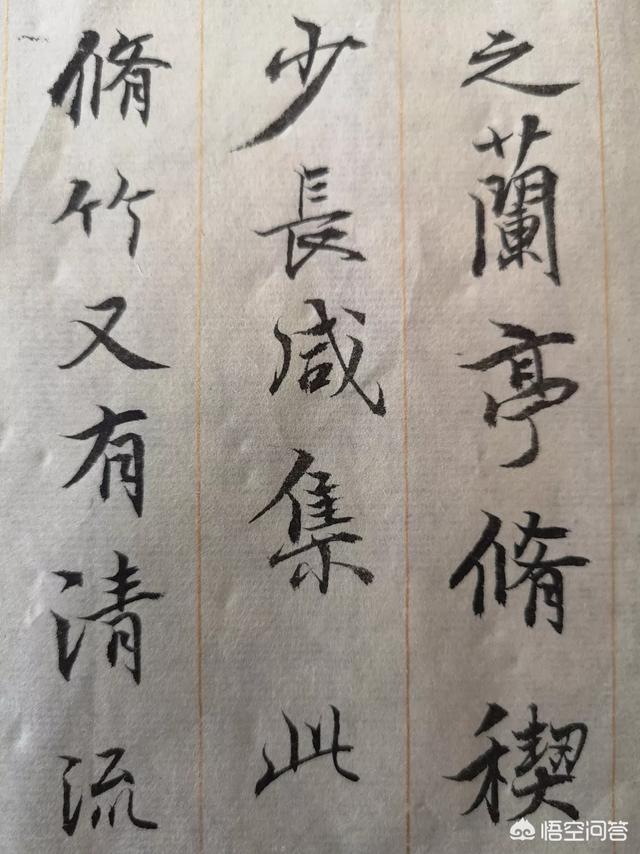 之蘭亭脩稧
少長咸集此
脩竹又有清流
悟空问答